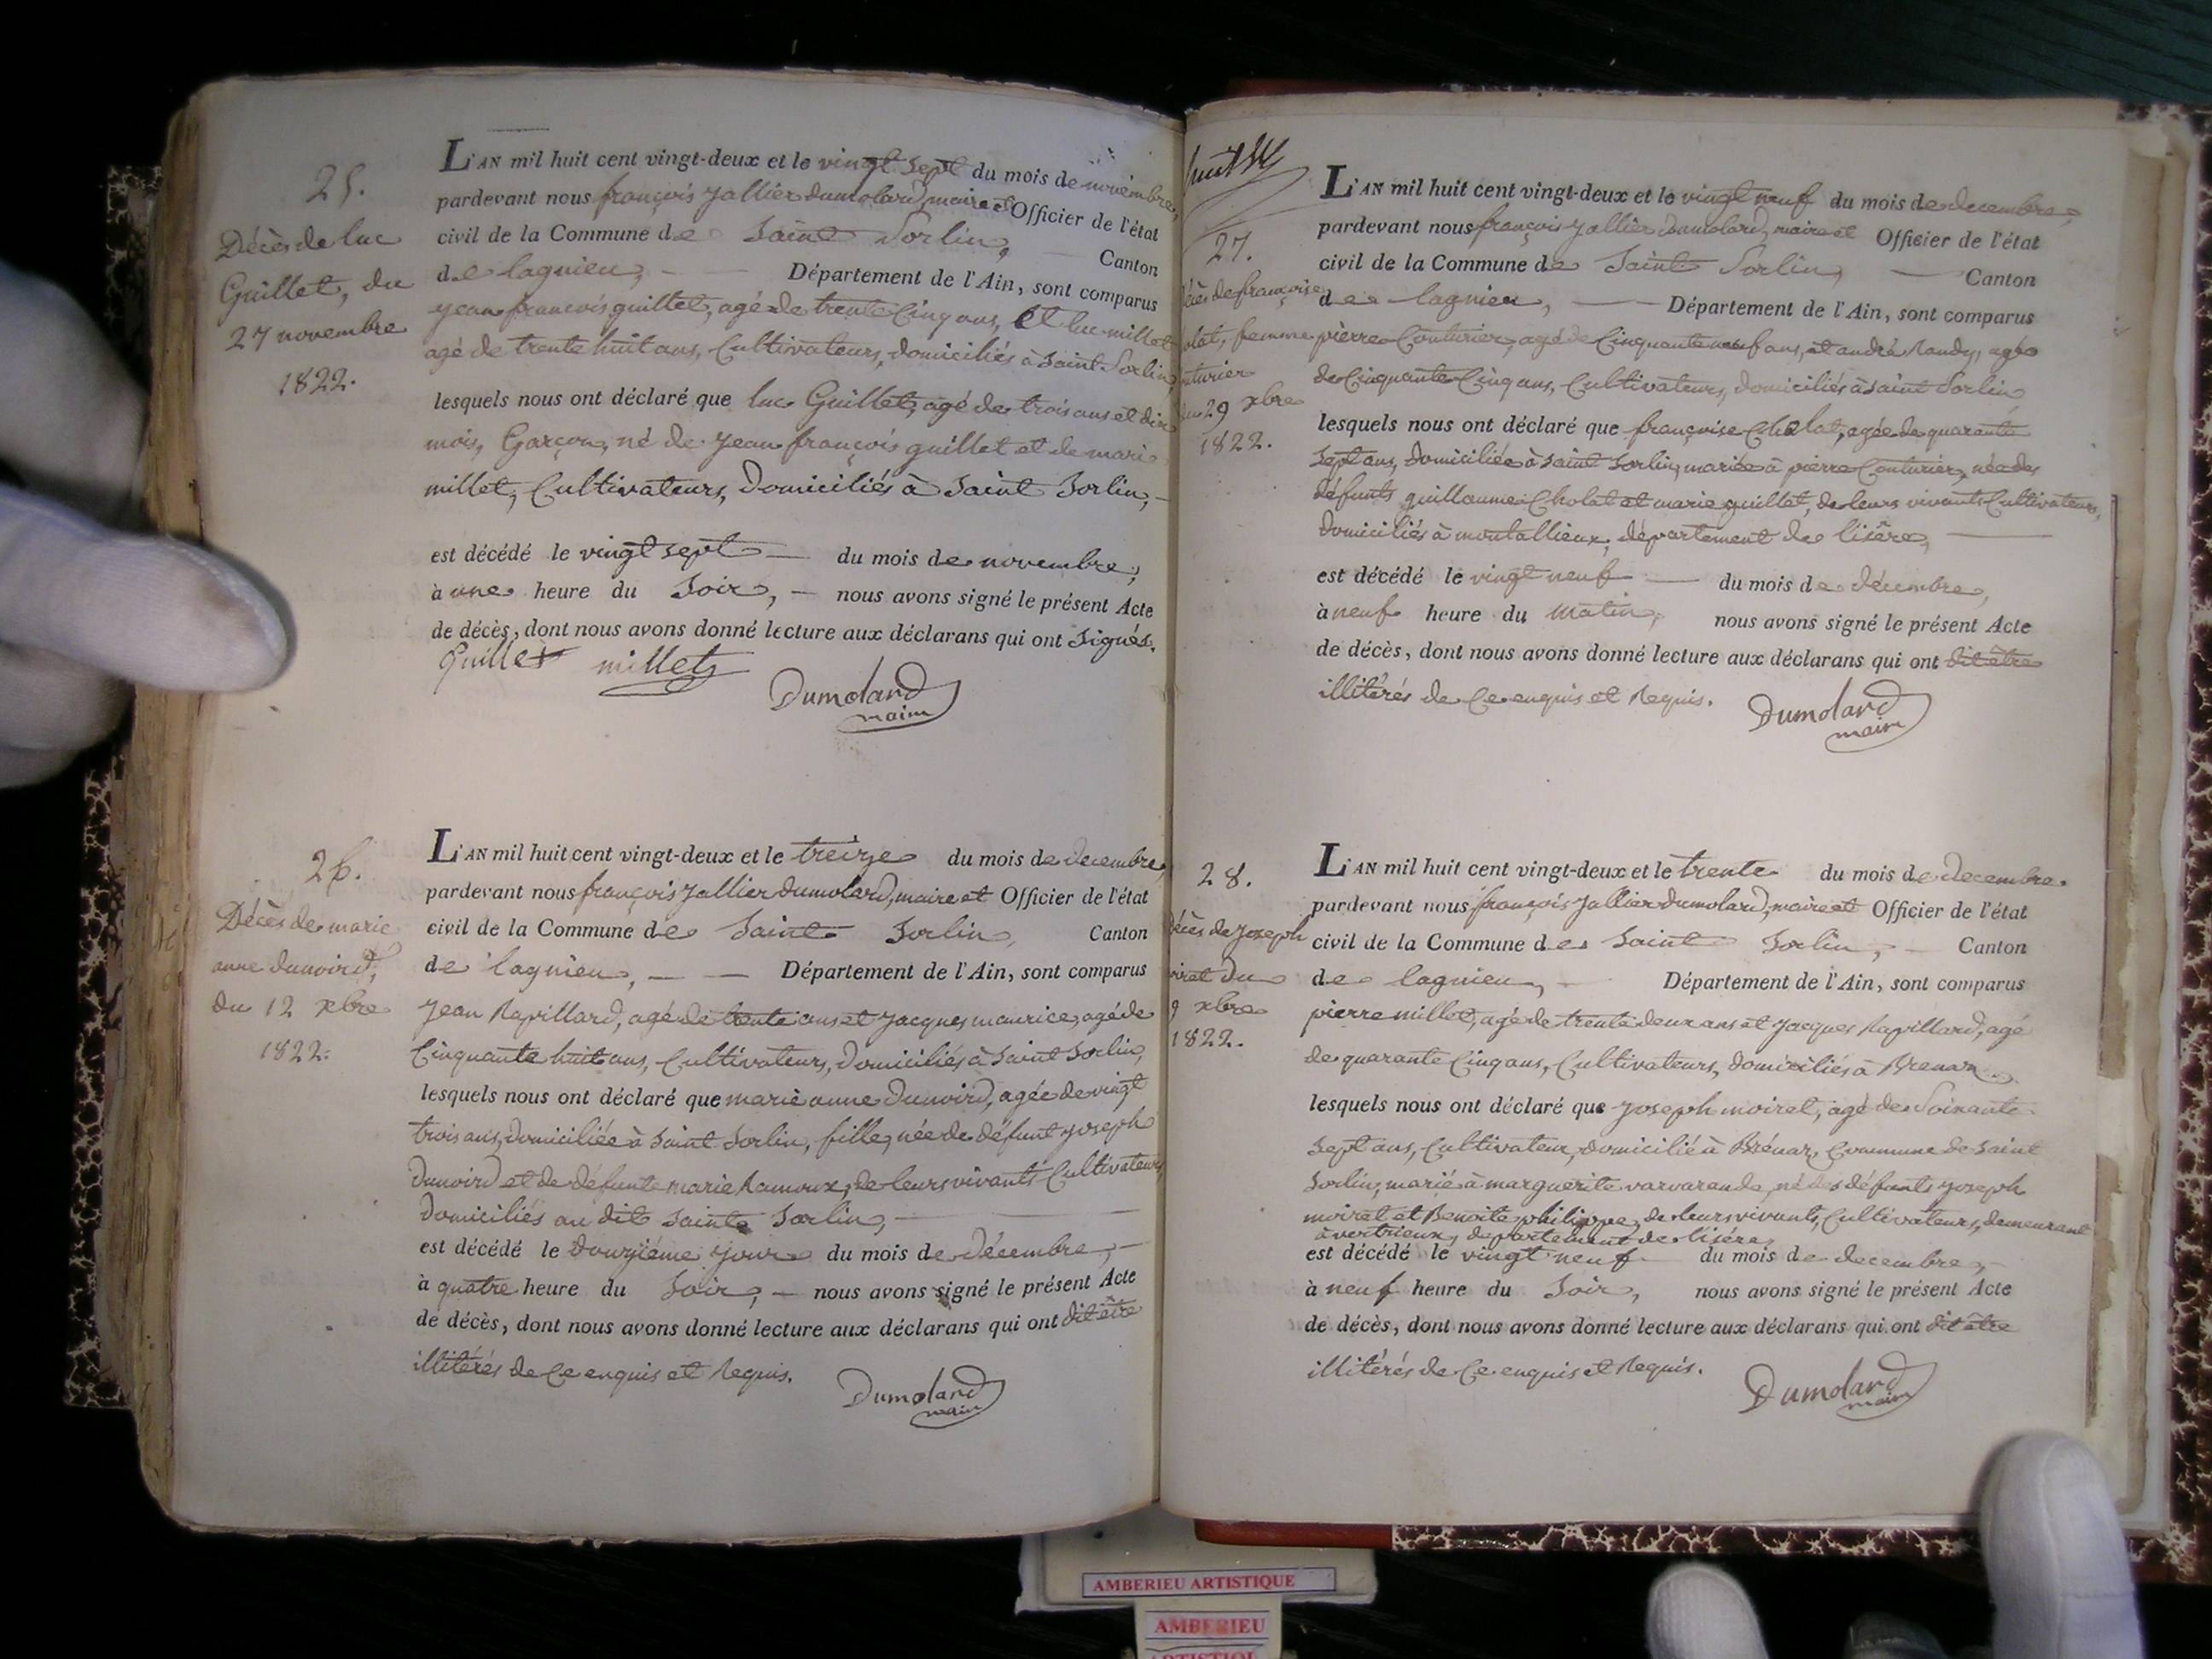 25.
Décès de luc
Guillet, du
27 novembre
1822.
L'AN mil huit cent vingt-deux et le vingt sept du mois de novembre,
pardevant nous françois Jallier dumolard, maire et Officier de l'état
civil de la Commune de Saint Sorlin, Canton
de lagnieu, Département de l'Ain, sont comparus
jean françois guillet, agé de trente Cinq ans, Et luc millet
agé de trente huit ans, Cultivateurs, domiciliés à Saint Sorlin,
lesquels nous ont déclaré que luc Guillet, agé de trois ans et dix
mois, Garçon, né de jean françois guillet et de marie
millet, Cultivateurs, Domiciliés à Saint Sorlin,
est décédé le vingt sept du mois de novembre,
à une heure du Soir, nous avons signé le présent Acte
de décès, dont nous avons donné lecture aux déclarans qui ont signés.
Guillet millet
Dumolard
maire
26.
Décès de marie
anne dunoird,
du 12 xbre
1822.
L'AN mil huit cent vingt-deux et le treize du mois de decembre,
pardevant nous françois Jallier dumolard, maire et Officier de l'état
civil de la Commune de Saint Sorlin, Canton
de lagnieu, Département de l'Ain, sont comparus
Jean Rapillard, agé de trente ans et jacques maurice, agé de
Cinquante huit ans, Cultivateurs, domiciliés à Saint Sorlin,
lesquels nous ont déclaré que marie anne Dunoird, agée de vingt
trois ans, domiciliée à Saint Sorlin, fille, née de défunt joseph
Dunoird et de défunte marie Ramoux, de leurs vivants Cultivateurs
domiciliés au dit Saint Sorlin,
est décédé le Douzième jour du mois de décembre,
à quatre heure du Soir, nous avons signé le présent Acte
de décès, dont nous avons donné lecture aux déclarans qui ont dit être
illitérés de Ce enquis et Requis.
Dumolard
maire
huit
27.
écès de françoise
olat, femme
uturier
du 29 xbre
1822.
L'AN mil huit cent vingt-deux et le vingt neuf du mois de decembre,
pardevant nous françois Jallier Dumolard, maire et Officier de l'état
civil de la Commune de Saint Sorlin, Canton
de lagnieu, Département de l'Ain, sont comparus
pierre Couturier, agé de Cinquante neuf ans, et andré Randy, agé
de Cinquante Cinq ans, Cultivateurs, domiciliés à Saint Sorlin
lesquels nous ont déclaré que françoise Cholat, agée de quarante
Sept ans, Domiciliée à Saint Sorlin, mariée à pierre Couturier, née des
défunts guillaume Cholat et marie guillet, de leurs vivants Cultivateurs,
domiciliés à montallieux, département de lisère,
est décédé le vingt neuf du mois de décembre,
à neuf heure du matin, nous avons signé le présent Acte
de décès, dont nous avons donné lecture aux déclarans qui ont dit être
illitérés de Ce enquis et Requis.
Dumolard
maire
28.
écès de joseph
oiret du
9 xbre
1822.
L'AN mil huit cent vingt-deux et le trente du mois de decembre.
pardevant nous françois Jallier dumolard, maire et Officier de l'état
civil de la Commune de Saint Sorlin, Canton
de lagnieu, Département de l'Ain, sont comparus
pierre millet, agé de trente deux ans et jacques Rapillard, agé
de quarante Cinq ans, Cultivateurs, domiciliés à Brenaz
lesquels nous ont déclaré que joseph moiret, agé de Soixante
Sept ans, Cultivateur, domicilié à Brénaz, Commune de Saint
Sorlin, marié à marguerite varvarande, né des défunts joseph
moiret et Benoite philippe, de leurs vivants, Cultivateurs, demeurant
à vertrieux, département de lisère,
est décédé le vingt neuf du mois de decembre,
à neuf heure du Soir, nous avons signé le présent Acte
de décès, dont nous avons donné lecture aux déclarans qui ont dit être
illitérés de Ce enquis et Requis.
Dumolard
maire
AMBERIEU ARTISTIQUE
AMBERIEU
ARTISTIQUE